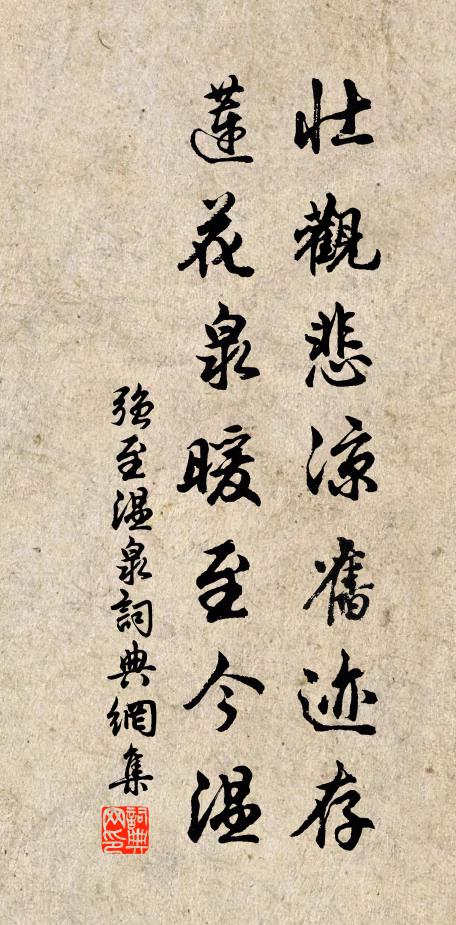 壮觀悲涼舊迹存
蓮花泉暖至今温
强至温泉詞典網集
詞典网印